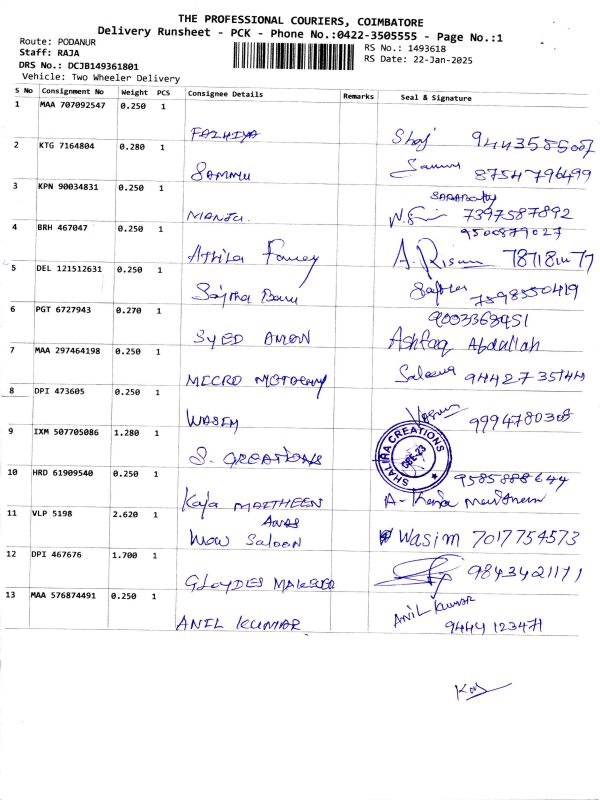 THE PROFESSIONAL COURIERS, COIMBATORE
Delivery Runsheet - PCK - Phone No.:0422-3505555 - Page No.:1
Route: PODANUR
Staff: RAJA
DRS No.: DCJB149361801
Vehicle: Two Wheeler Delivery
RS No.: 1493618
RS Date: 22-Jan-2025
S No Consignment No Weight PCS Consignee Details Remarks Seal & Signature
1 MAA 707092547 0.250 1
FAZHIYA 9443585007
2 KTG 7164804 0.280 1
SAMMU 8754796499
3 KPN 90034831 0.250 1
MANJU. 7397587892
9500879027
4 BRH 467047 0.250 1
5 DEL 121512631 0.250 1
Sajitha Banu 7598550419
6 PGT 6727943 0.270 1
9003368951
SYED AMAN Ashfaq Abdullah
7 MAA 297464198 0.250 1
MICRO
8 DPI 473605 0.250 1
WASIM 9994780305
9 IXM 507705086 1.280 1
S. CREATIONS
SHALIRA CREATIONS
10 HRD 61909540 0.250 1
9585888644
Kaja MAITHEEN
11 VLP 5198 2.620 1
Wow Saloon Wasim 7017754573
12 DPI 467676 1.700 1
9843421171
13 MAA 576874491 0.250 1
ANIL KUMAR
ANIL KUMAR
9444123471